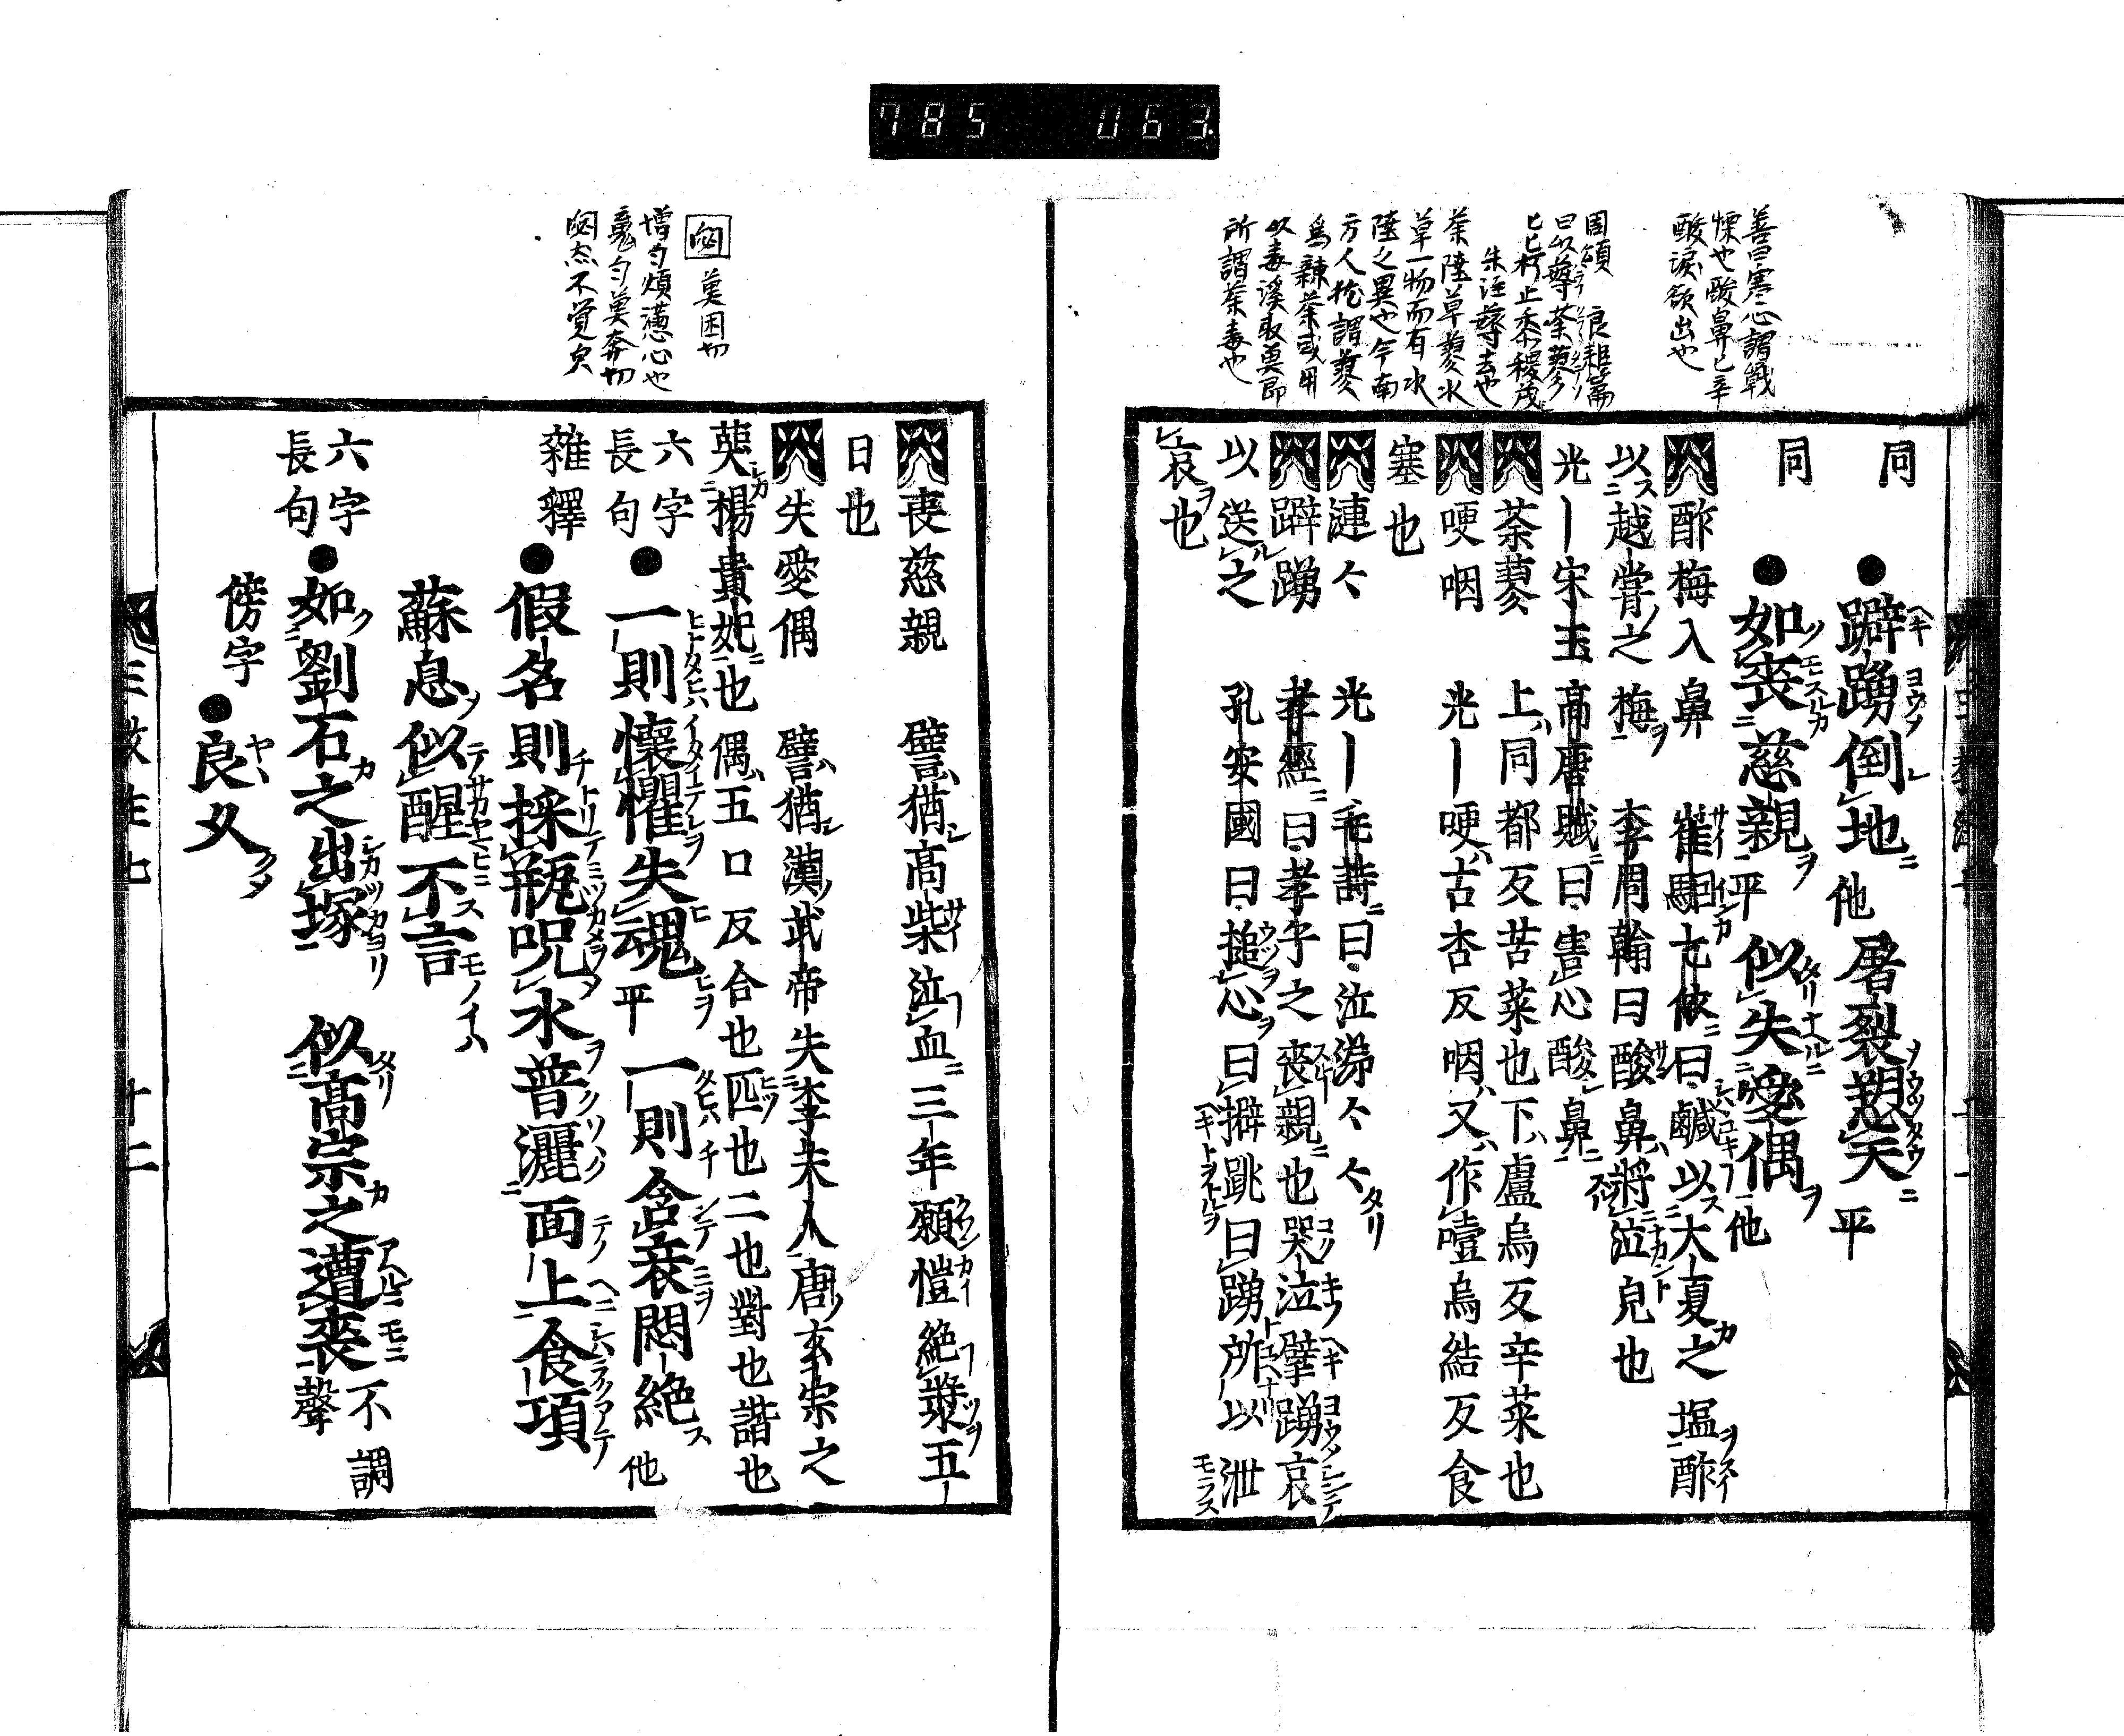 785 063
善曰寒心謂戰
慄也酸鼻已辛
酸淚欲出也
周頌 良耜篇
曰以薅荼蓼
匕匕朽止黍稷茂
朱注薅去也
荼陸草蓼水
草一物而有水
陸之異也今南
方人猶謂蓼
爲辣荼或用
以毒溪取魚即
所謂荼毒也
同 ●躃踊倒地他屠裂愬天平
同 ●如喪慈親平似失愛偶他
酢梅入鼻 崔駰七依曰鹹以大夏之塩酢
以越甞之梅 李周翰曰酸鼻將泣皃也
光ー宋玉高唐賦曰寒心酸鼻
荼蓼 上同都反苦菜也下盧烏反辛菜也
哽咽 光ー哽古杏反咽又作噎烏結反食
塞也
漣々 光ー毛詩曰泣涕々々
躃踊 孝經曰孝子之喪親也哭泣擘踊哀
以送之 孔安國曰搥心曰擗跳曰踊所以泄
哀也
悶 莫困切
喪慈親 譬猶高柴泣血三年顧愷絶漿五ー
日也
失愛偶 譬猶漢武帝失李夫人唐玄宗之
𦵏楊貴妃也偶五口反合也匹也二也對也諧也
六字
長句 ●一則懷懼失魂平一則含哀悶絶他
雜釋 ●假名則採瓶呪水普灑面上食頃
蘇息似醒不言
六字
長句 ●如劉石之出塚 似髙宗之遭喪不調聲
傍字 ●良久
三教 十二